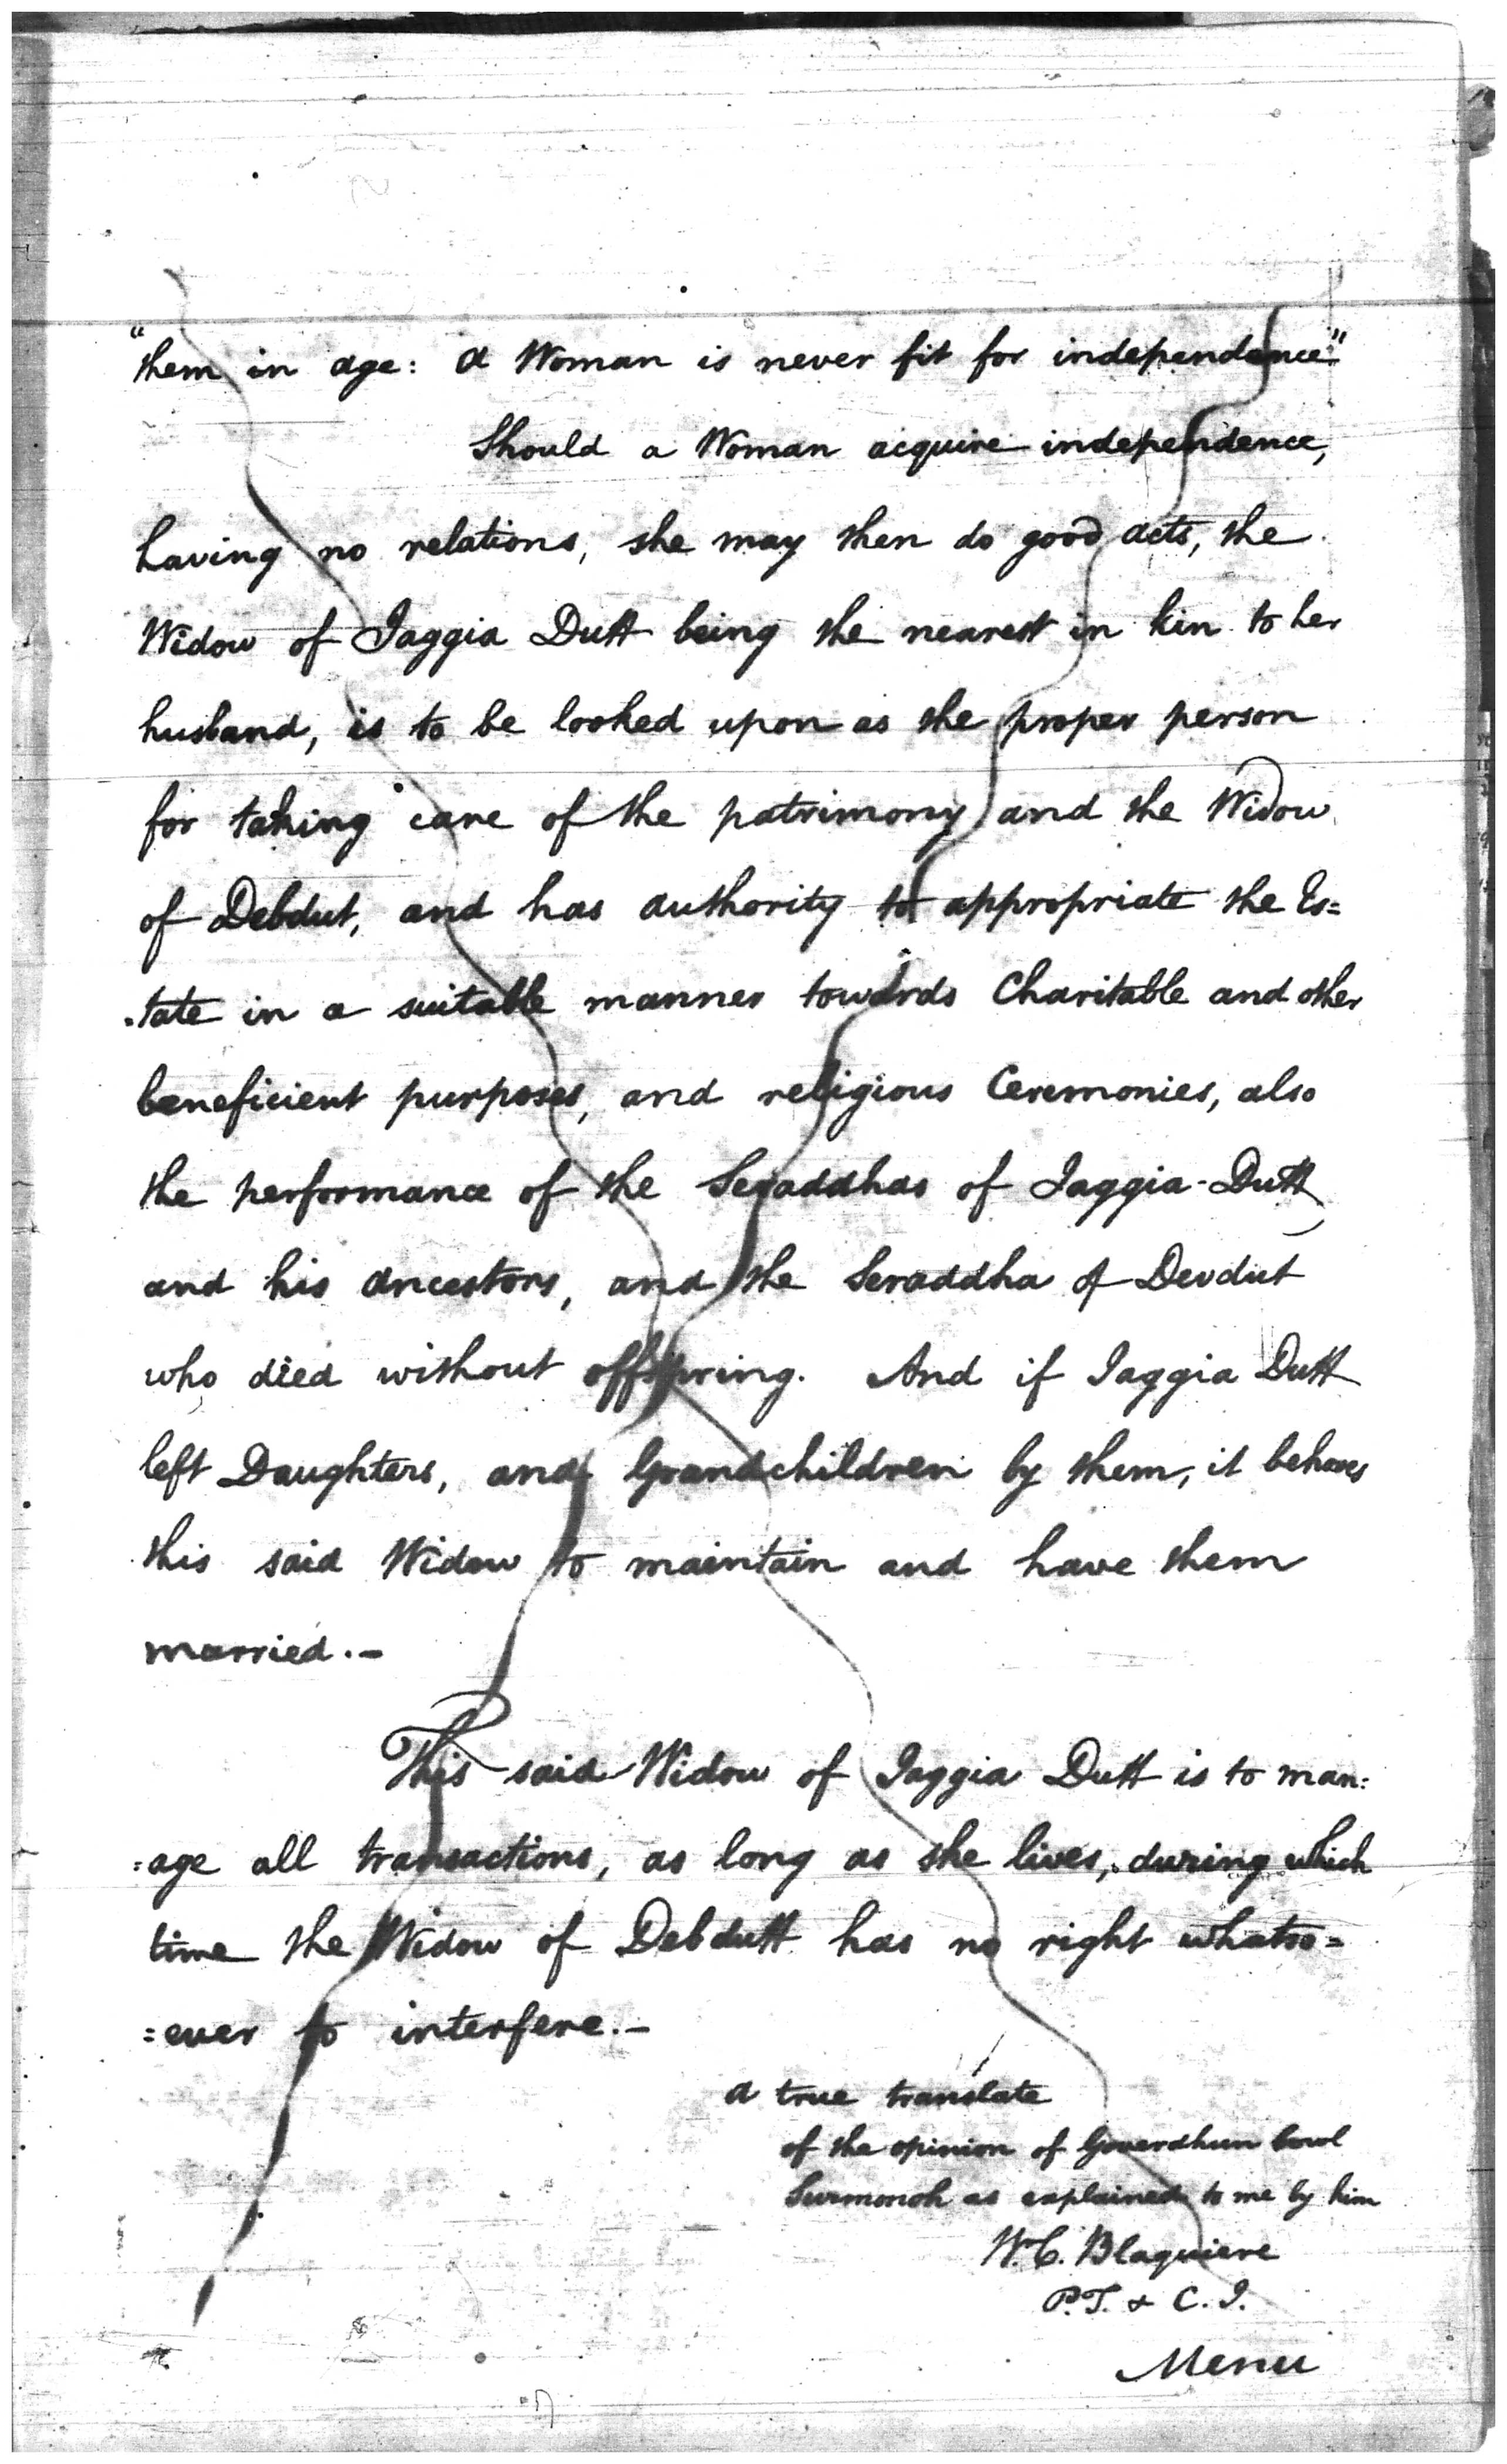 "them in age: A Woman is never fit for independence."
Should a Woman acquire independence,
having no relations, she may then do good acts, the
Widow of Jaggia Dutt being the nearest in kin to her
husband, is to be looked upon as the proper person
for taking care of the patrimony and the Widow
of Debdut, and has authority to appropriate the Es=
.tate in a suitable manner towards Charitable and other
beneficient purposes, and religious Ceremonies, also
the performance of the Seraddhas of Jaggia-Dutt
and his Ancestors, and the Seraddha of Devdut
who died without offspring. And if Jaggia Dutt
left Daughters, and Grandchildren by them, it behoves
this said Widow to maintain and have them
married.-
This said Widow of Jaggia Dutt is to man:
:age all transactions, as long as she lives, during which
time the Widow of Debdutt has no right whatso=
:ever to interfere.-
A true translate
of the opinion of Goverdhun Cowl
Surmonoh as explained to me by him
W.C. Blaquiere
P.T. & C.I.
Menu